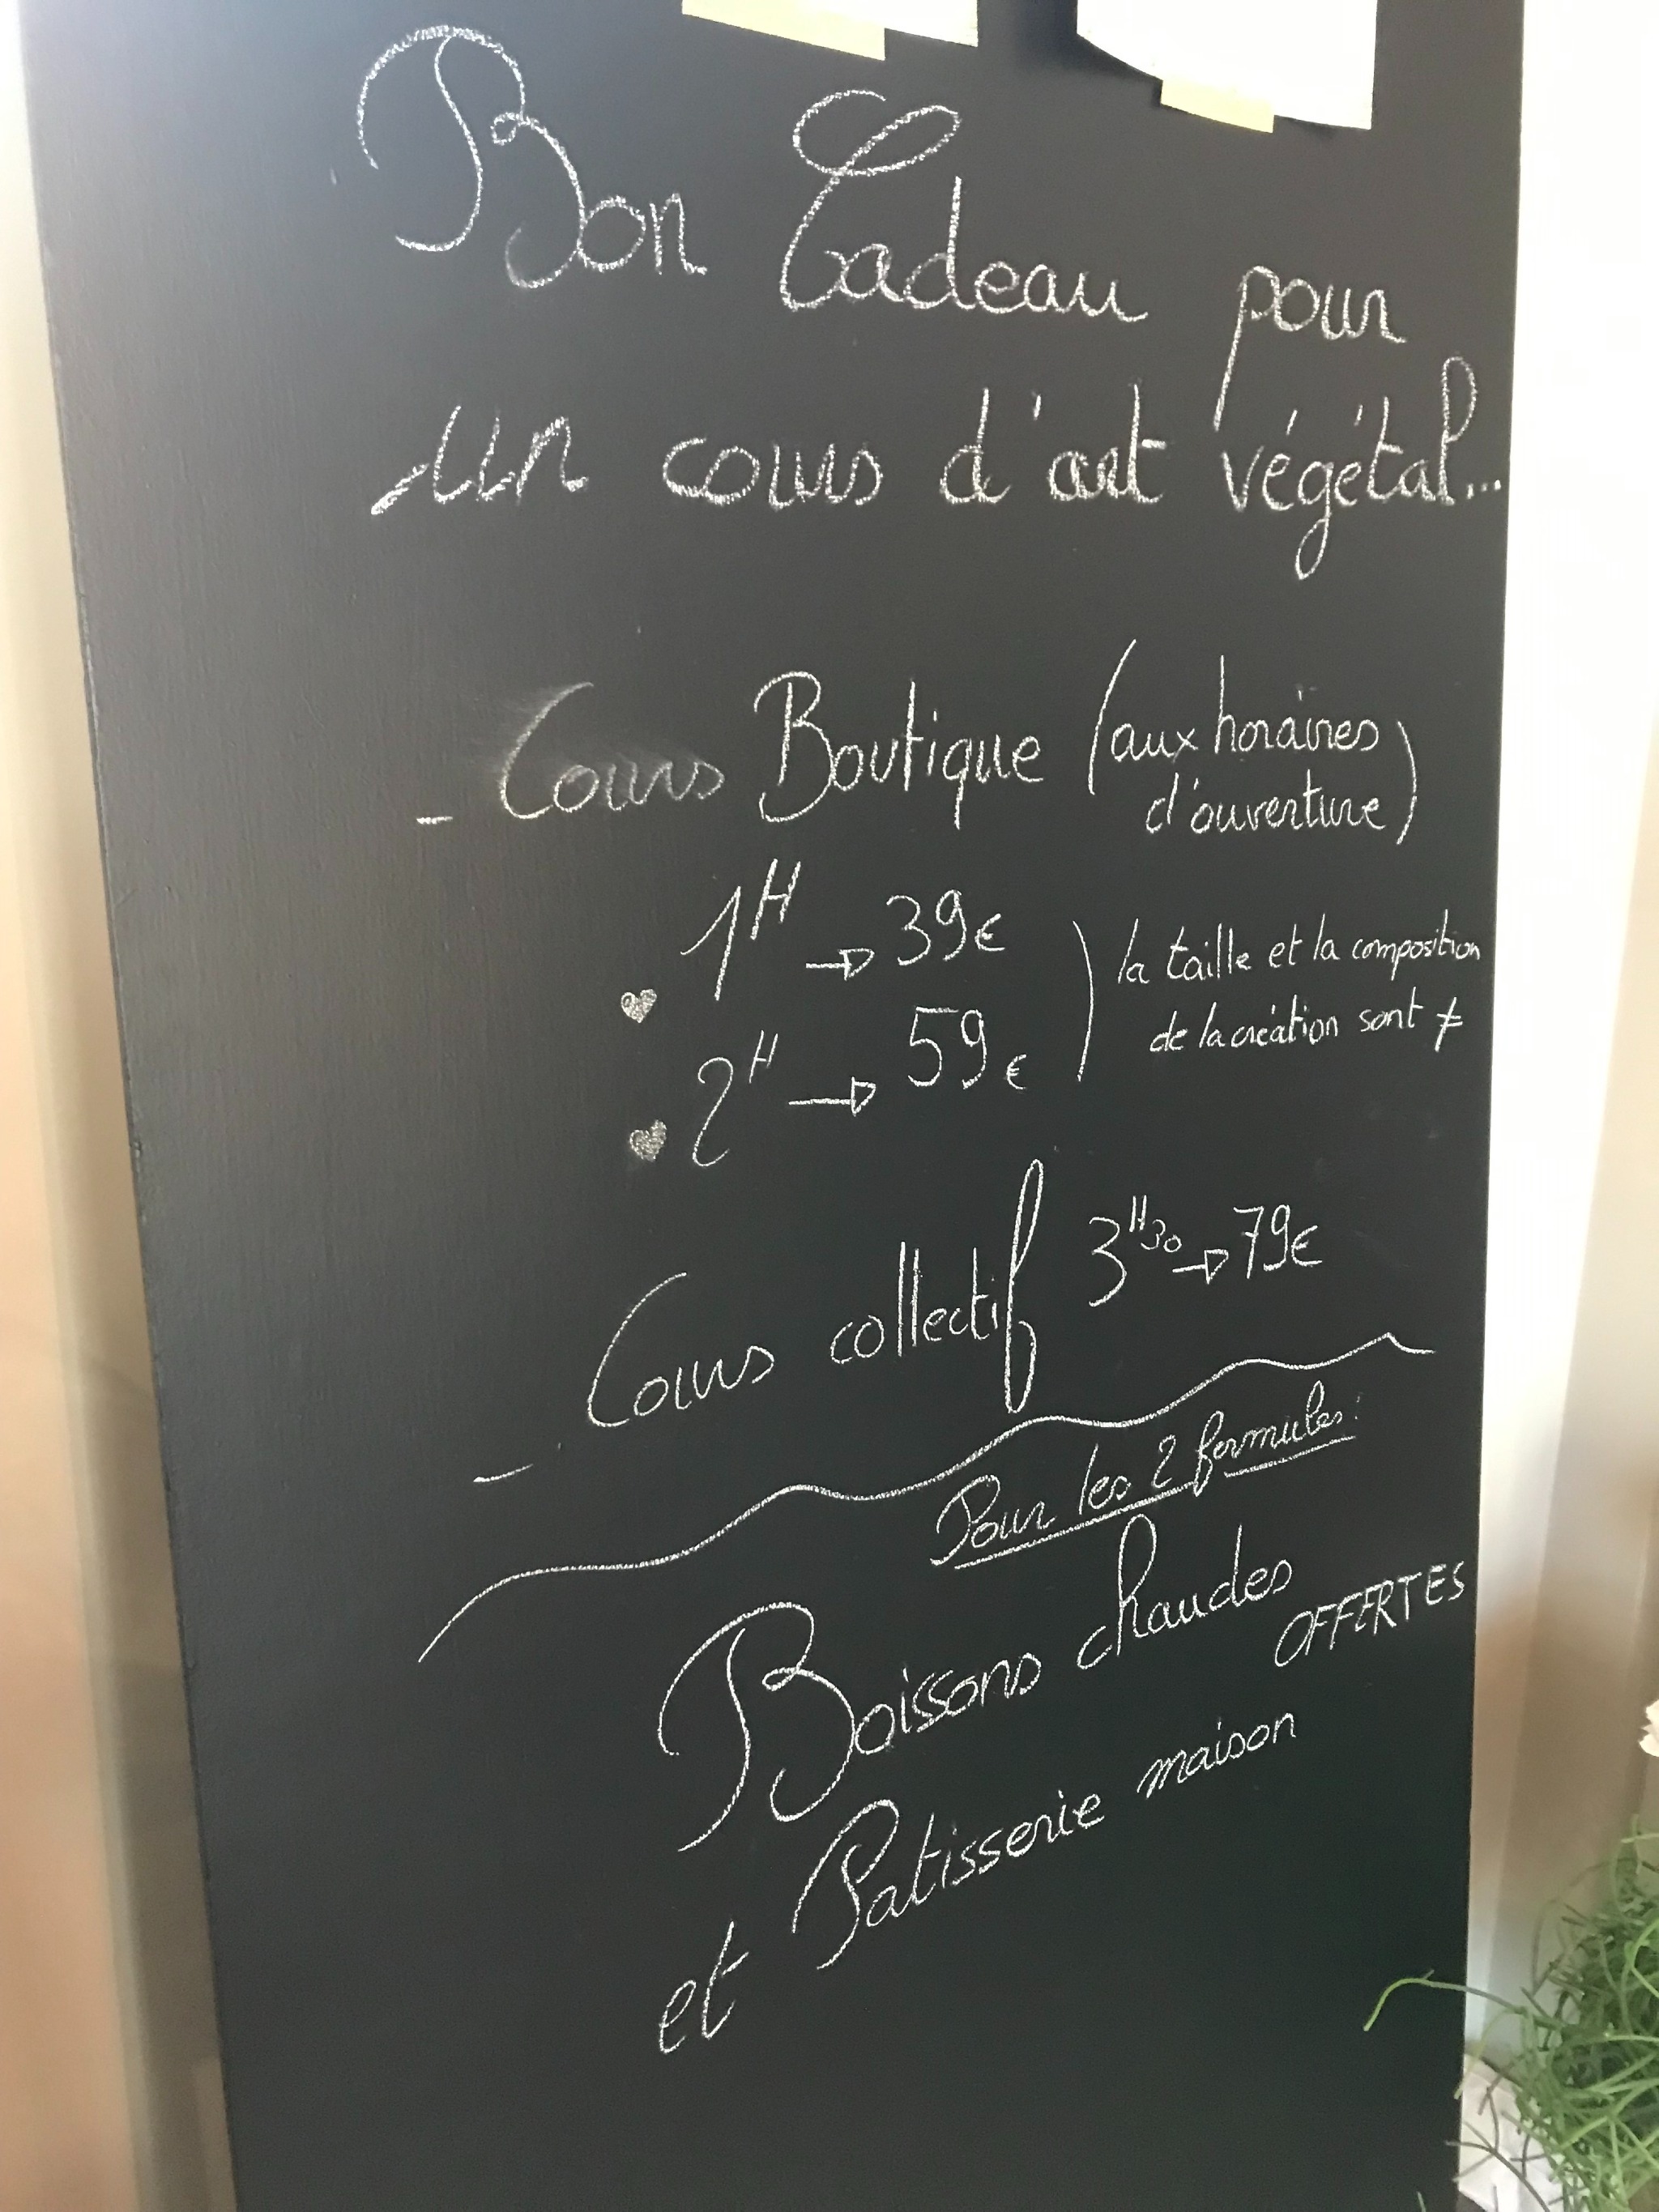 Bon Cadeau pour
un cours d'art végétal...
- Cours Boutique (aux horaires
d'ouverture)
1H → 39€
2H → 59€
) la taille et la composition
de la création sont ≠
- Cours collectif 3H30 → 79€
Pour les 2 formules:
Boissons chaudes
OFFERTES
et Patisserie maison